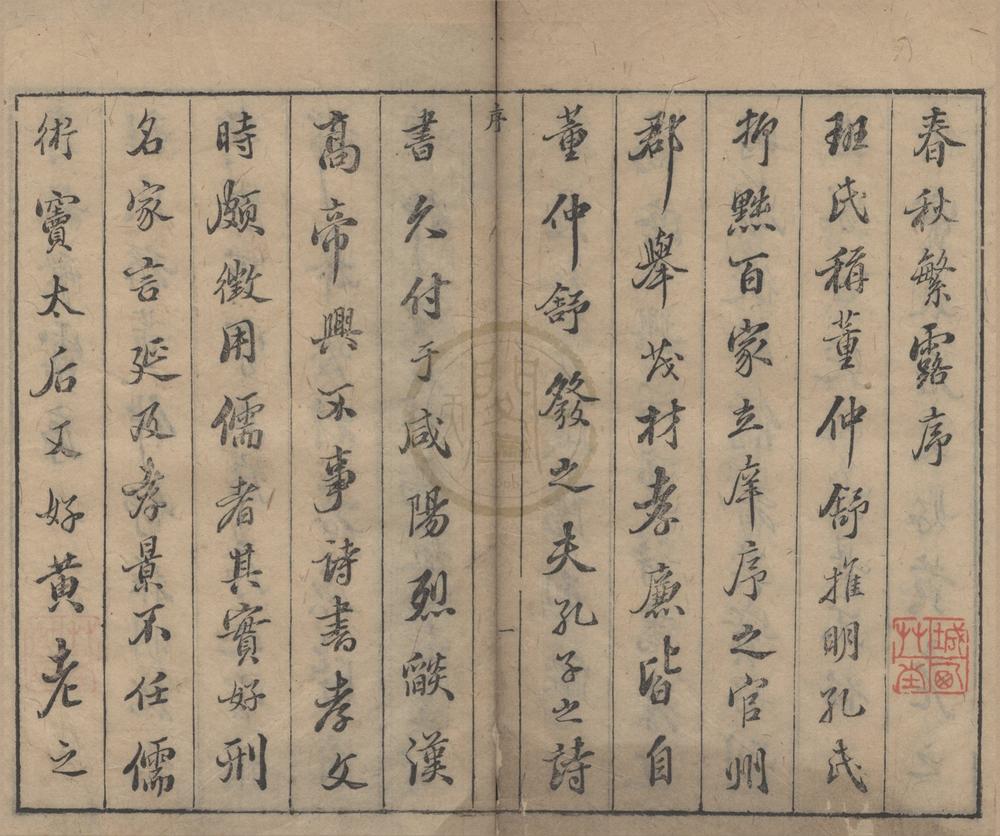 春秋繁露序
班氏稱董仲舒推明孔氏
抑黜百家立庠序之官州
郡舉茂材孝廉皆自
董仲舒發之夫孔子之詩
序
一
書久付于咸陽烈燄漢
高帝興不事詩書孝文
時頗徵用儒者其實好刑
名家言延及孝景不任儒
術竇太后又好黃老之